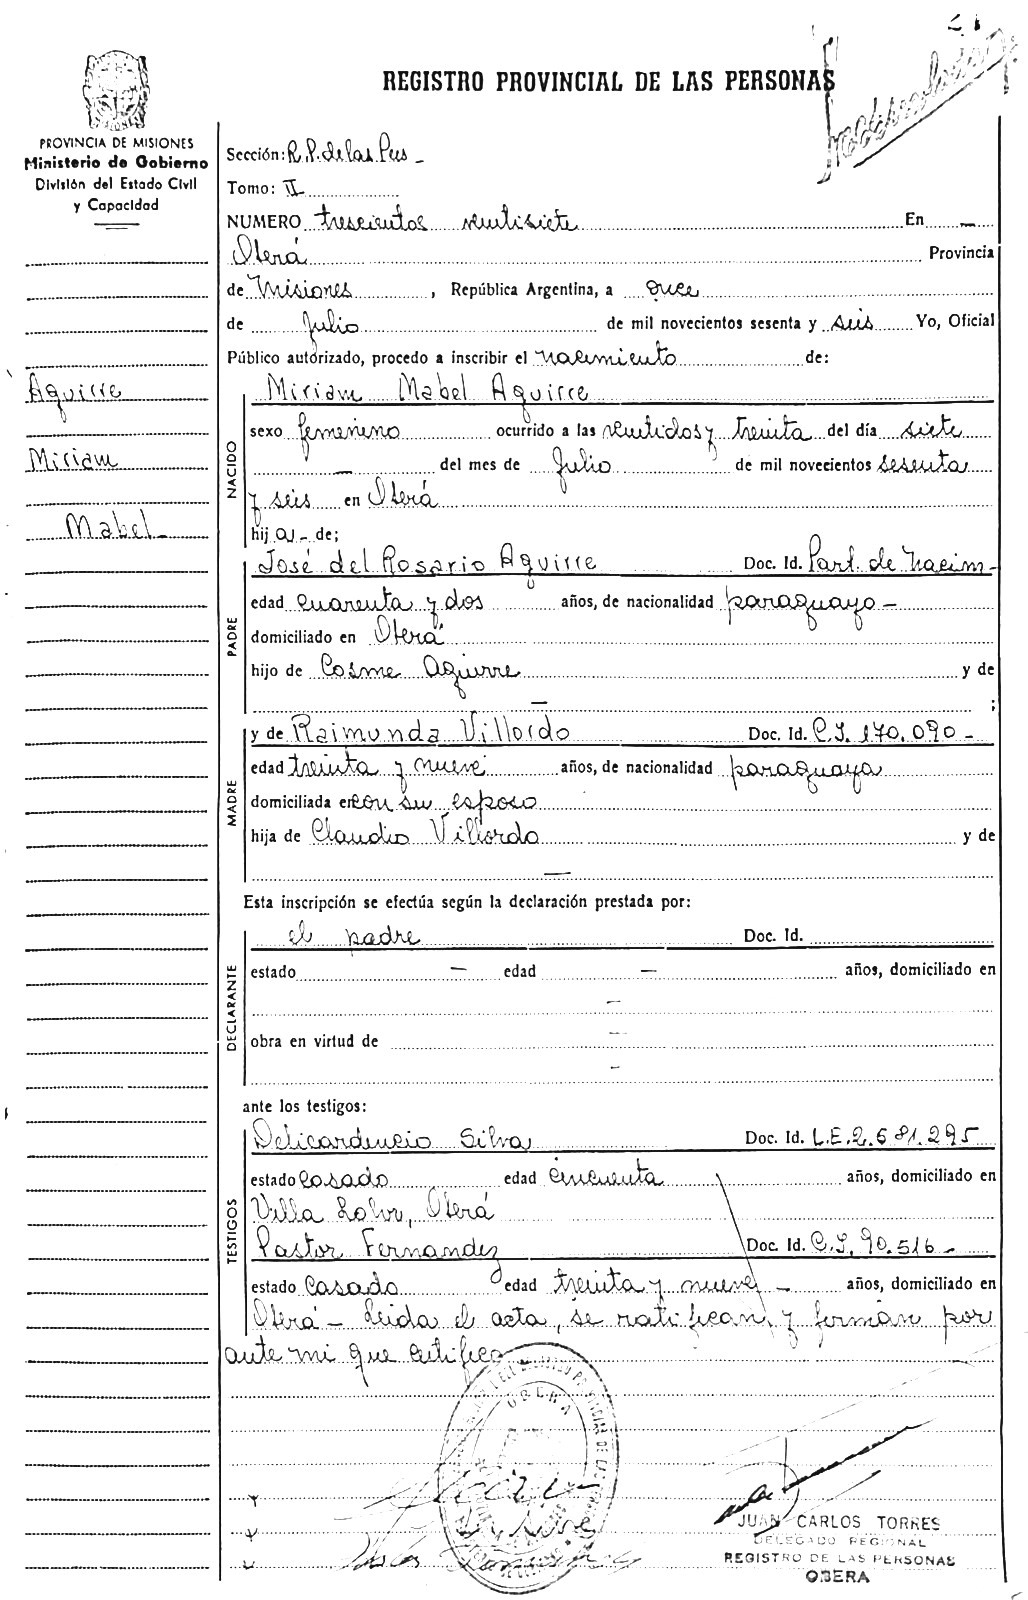 REGISTRO PROVINCIAL DE LAS PERSONAS
PROVINCIA DE MISIONES
Ministerio de Gobierno
División del Estado Civil
y Capacidad
Aguirre
Miriam
Mabel
Sección: R.P. de las Pers
Tomo: II
NUMERO trescientos veintisiete En
Oberá Provincia
de Misiones, República Argentina, a once
de Julio de mil novecientos sesenta y seis Yo, Oficial
Público autorizado, procedo a inscribir el nacimiento de:
NACIDO
Miriam Mabel Aguirre
sexo femenino ocurrido a las veintidos y treinta del día siete
del mes de Julio de mil novecientos sesenta
y seis en Oberá
hija de;
PADRE
José del Rosario Aguirre Doc. Id. Part. de Nacim-
edad cuarenta y dos años, de nacionalidad paraguayo
domiciliado en Oberá
hijo de Cosme Aguirre y de
;
MADRE
y de Raimunda Villordo Doc. Id. C.I. 170.090
edad treinta y nueve años, de nacionalidad paraguaya
domiciliada en con su esposo
hija de Claudio Villordo y de
Esta inscripción se efectúa según la declaración prestada por:
DECLARANTE
el padre Doc. Id.
estado edad años, domiciliado en
obra en virtud de
ante los testigos:
TESTIGOS
Delicardencio Silva Doc. Id. L.E. 2.581.295
estado casado edad cincuenta años, domiciliado en
Villa Oberá
Pastor Fernandez Doc. Id. C.I. 90.516
estado casado edad treinta y nueve años, domiciliado en
Oberá - Leida el acta, se ratifican, y firman por
ante mi que certifico
OBERA
JUAN CARLOS TORRES
DELEGADO REGIONAL
REGISTRO DE LAS PERSONAS
OBERA